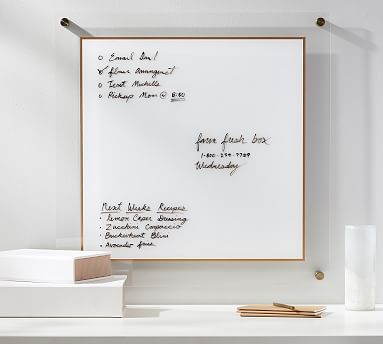 Email Dan!
flower Arrangement
Text Michelle
Pickup Mom @ 8:30
farm fresh box
1-800-279-7789
Wednesday
Next Weeks Recipes
Lemon Caper Dressing
Zucchini Carpaccio
Buckwheat Blini
Avocado